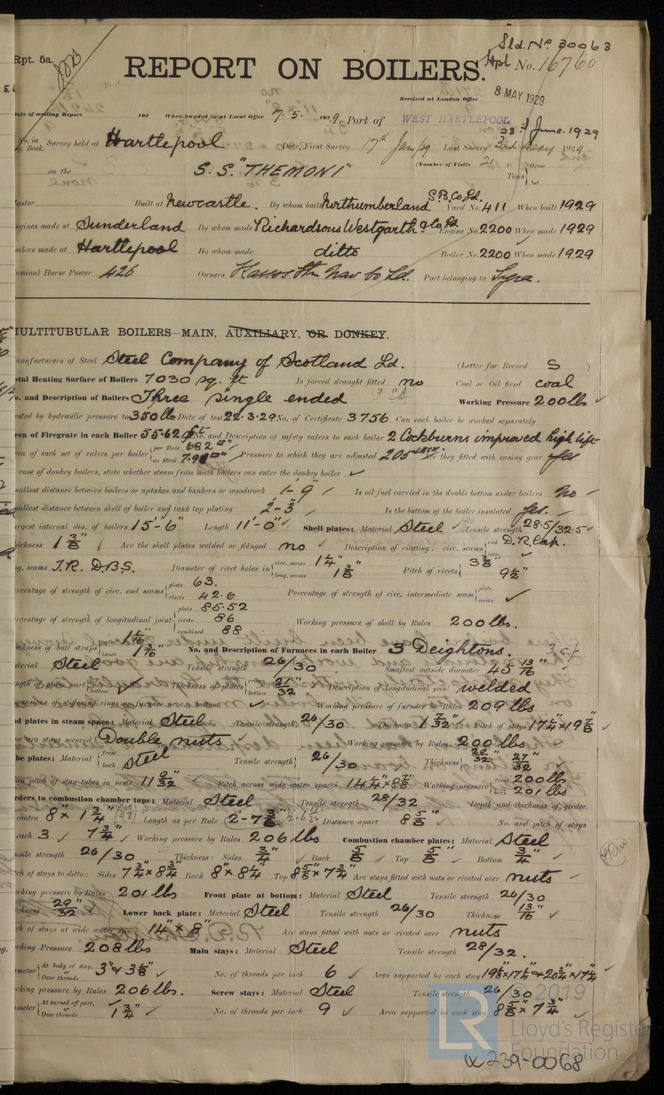 Sld. No. 30063
Rpt. 5a.
Hpl No. 16760
REPORT ON BOILERS.
Received at London Office 8 MAY 1929
ate of writing Report 192 When handed in at Local Office 7.5. 1929 Port of WEST HARTLEPOOL
No. in Survey held at Hartlepool Date, First Survey 17th Jan/29 Last Survey May 1929
Book. (Number of Visits 21)
on the S.S. "THEMONI" Tons
Built at Newcastle. By whom built Northumberland S.B.Co.Ld. Yard No. 411 When built 1929
ngines made at Sunderland By whom made Richardsons Westgarth & Co Ld Engine No. 2200 When made 1929
oilers made at Hartlepool By whom made ditto Boiler No. 2200 When made 1929
ominal Horse Power 426 Owners Kassos Stm Nav Co Ld. Port belonging to Syra.
ULTITUBULAR BOILERS—MAIN, AUXILIARY, OR DONKEY.
anufacturers of Steel Steel Company of Scotland Ld. (Letter for Record S )
otal Heating Surface of Boilers 7030 sq. ft Is forced draught fitted no Coal or Oil fired coal
o. and Description of Boilers Three single ended Working Pressure 200 lbs
ested by hydraulic pressure to 350 lbs Date of test 22.3.29 No. of Certificate 3756 Can each boiler be worked separately
rea of Firegrate in each Boiler 55.62 No. and Description of safety valves to each boiler 2 Cockburns improved high lift
rea of each set of valves per boiler per Rule 6.82 as fitted 7.98 Pressure to which they are adjusted 205 Are they fitted with easing gear yes
case of donkey boilers, state whether steam from main boilers can enter the donkey boiler
mallest distance between boilers or uptakes and bunkers or woodwork 1'-9" Is oil fuel carried in the double bottom under boilers No
mallest distance between shell of boiler and tank top plating 2'-3" Is the bottom of the boiler insulated yes.
argest internal dia. of boilers 15'-6" Length 11'-0" Shell plates: Material Steel Tensile strength 28.5/32.5
hickness 1 3/8" Are the shell plates welded or flanged no Description of riveting: circ. seams D.R.Lap.
ng. seams T.R. D.B.S. Diameter of rivet holes in circ. seams 1 1/4" long. seams 1 3/8" Pitch of rivets 3 7/8" 9 1/2"
ercentage of strength of circ. end seams plate 63. rivets 42.6 Percentage of strength of circ. intermediate seam plate rivets
ercentage of strength of longitudinal joint plate 85.52 rivets 86 combined 88 Working pressure of shell by Rules 200 lbs.
hickness of butt straps outer 1 1/16" inner 1 3/16" No. and Description of Furnaces in each Boiler 3 Deightons.
aterial Steel Tensile strength 26/30 Smallest outside diameter 45 13/16"
ngth of plain part top bottom Thickness of plates 21/32" Description of longitudinal joint welded
imensions of stiffening rings on furnace or c.c. bottom Working pressure of furnace by Rules 209 lbs
nd plates in steam space: Material Steel Tensile strength 26/30 Thickness 1 7/32" Pitch of stays 17 1/4" x 19 7/8"
ow are stays secured Double nuts Working pressure by Rules 200 lbs
be plates: Material front back Steel Tensile strength 26/30 Thickness 29/32" 27/32"
ean pitch of stay tubes in nests 11 9/32" Pitch across wide water spaces 14 1/4" x 8 5/8" Working pressure front 200 lbs back 201 lbs
rders to combustion chamber tops: Material Steel Tensile strength 28/32 Depth and thickness of girder
centre 8 x 1 3/4" Length as per Rule 2'-7 7/8" Distance apart 8 5/8" No. and pitch of stays
each 3 7 3/4" Working pressure by Rules 206 lbs Combustion chamber plates: Material Steel
nsile strength 26/30 Thickness: Sides 3/4" Back 5/8" Top 5/8" Bottom 3/4"
tch of stays to ditto: Sides 7 3/4" x 8 3/4" Back 8" x 8 3/4" Top 8 5/8" x 7 3/4" Are stays fitted with nuts or riveted over nuts
orking pressure by Rules 201 lbs Front plate at bottom: Material Steel Tensile strength 26/30
hickness 29/32" Lower back plate: Material Steel Tensile strength 26/30 Thickness 13/16"
tch of stays at wide water space 14" x 8" Are stays fitted with nuts or riveted over nuts
orking Pressure 208 lbs Main stays: Material Steel Tensile strength 28/32.
ameter At body of stay, or Over threads 3" & 3 1/8" No. of threads per inch 6 Area supported by each stay
orking pressure by Rules 206 lbs. Screw stays: Material Steel Tensile strength 26/30
ameter At turned off part, or Over threads 1 3/4" No. of threads per inch 9 Area supported by each stay 8 5/8" x 7 3/4"
© 2019
LR Lloyd's Register
Foundation
W239-0068